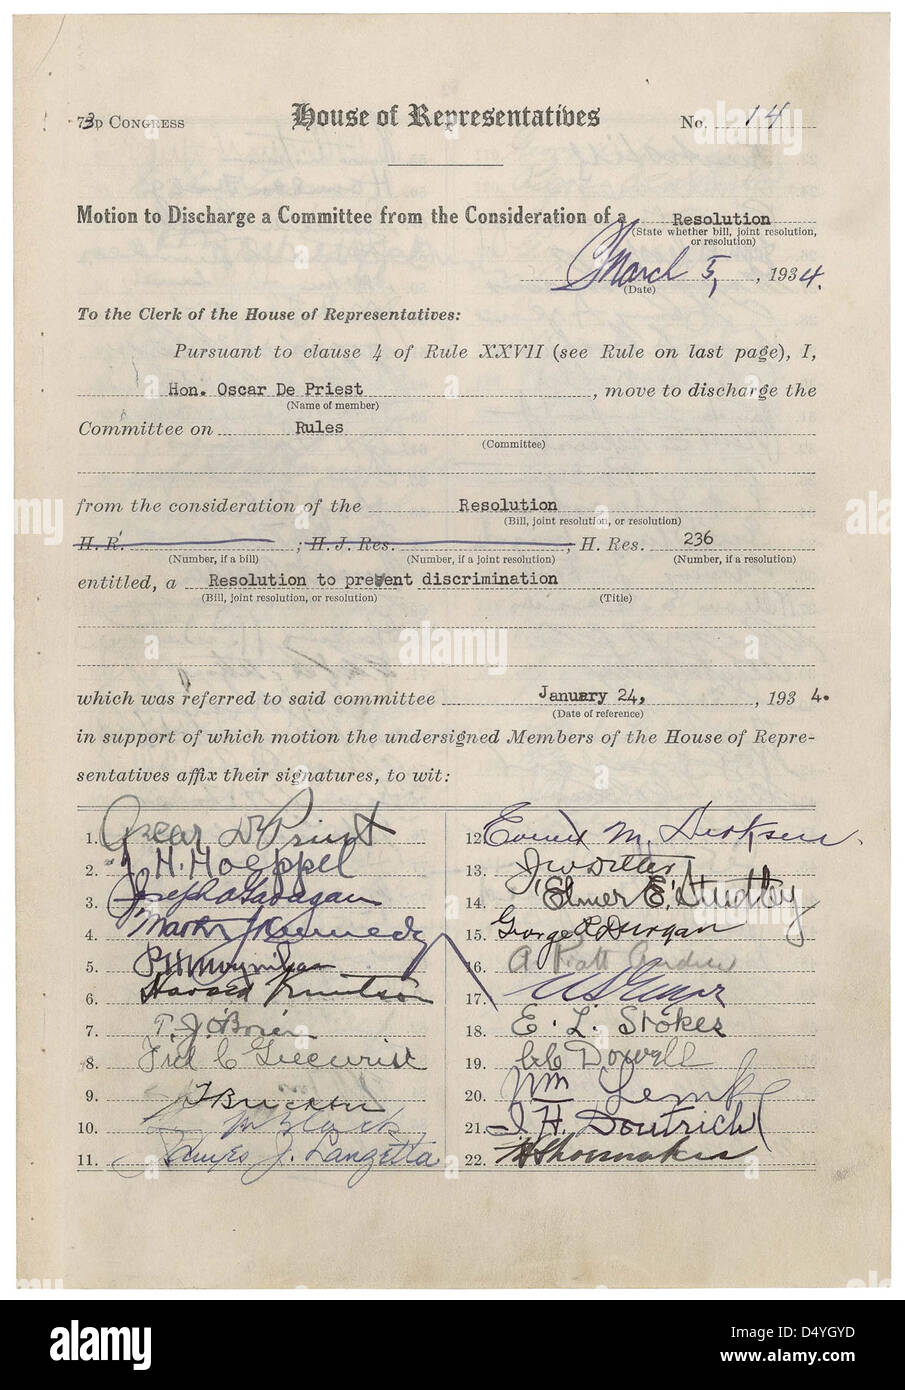 73D CONGRESS House of Representatives No. 14
Motion to Discharge a Committee from the Consideration of a Resolution
(State whether bill, joint resolution,
or resolution)
March 5, , 1934.
(Date)
To the Clerk of the House of Representatives:
Pursuant to clause 4 of Rule XXVII (see Rule on last page), I,
Hon. Oscar De Priest , move to discharge the
(Name of member)
Committee on Rules
(Committee)
from the consideration of the Resolution
(Bill, joint resolution, or resolution)
H. R. ; H. J. Res. ; H. Res. 236
(Number, if a bill) (Number, if a joint resolution) (Number, if a resolution)
entitled, a Resolution to prevent discrimination
(Bill, joint resolution, or resolution) (Title)
which was referred to said committee January 24, , 193 4.
(Date of reference)
in support of which motion the undersigned Members of the House of Repre-
sentatives affix their signatures, to wit:
1. Oscar De Priest 12. Everett M. Dirksen
2. J. H. Hoeppel 13. J W Ditter
3. Joseph A Gavagan 14. Elmer E. Studley
4. Martin J Kennedy 15. George R Durgan
5. P H Moynihan 16. A Piatt Andrew
6. Harold Knutson 17.
7. T. J. O'Brien 18. E. L. Stokes
8. Fred C Gilchrist 19. Dowell
9. 20. Wm Lemke
10. 21. I. H. Doutrich
11. James J. Lanzetta 22. Shoemaker
alamy
Image ID: D4YGYD
www.alamy.com